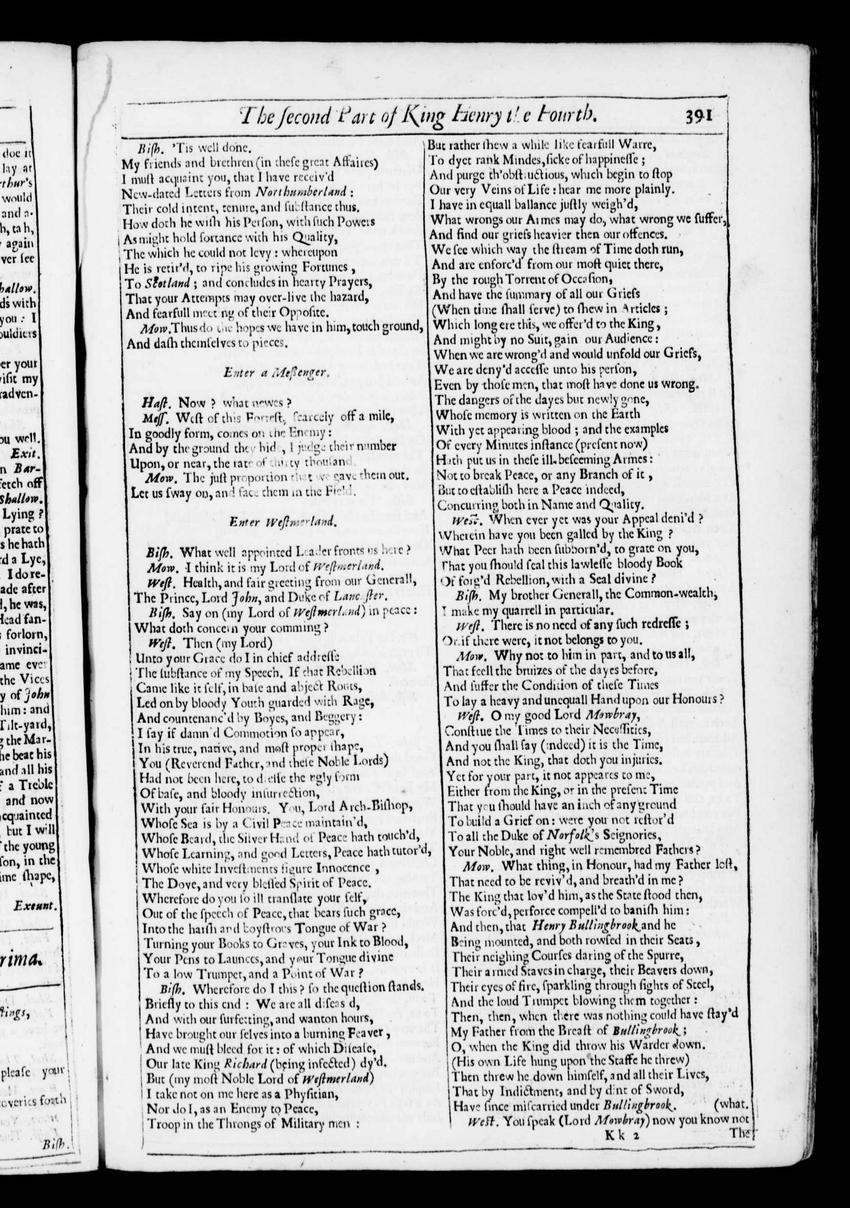 doe it
lay at
rthur's
would
and a-
h, ta h,
again
ver ſee
hallow.
ds with
you: I
ouldiers
er your
viſit my
radven-
ou well.
Exit.
n Bar-
fetch off
Shallow.
Lying?
prate to
s he hath
rd a Lye,
I do re-
ade after
l, he was,
Head fan-
forlorn,
invinci-
ame ever
the Vices
y of John
him: and
Tilt-yard,
g the Mar-
he beat his
and all his
f a Treble
and now
acquainted
but I will
the young
ſon, in the
ime ſhape,
Exeunt.
rima.
tings,
pleaſe your
coveries forth
Biſh.
The ſecond Part of King Henry the Fourth. 391
Biſh. 'Tis well done.
My friends and brethren (in theſe great Affaires)
I muſt acquaint you, that I have receiv'd
New-dated Letters from Northumberland:
Their cold intent, tenure, and ſubſtance thus.
How doth he wiſh his Perſon, with ſuch Powers
As might hold ſortance with his Quality,
The which he could not levy: whereupon
He is retir'd, to ripe his growing Fortunes,
To Scotland; and concludes in hearty Prayers,
That your Attempts may over-live the hazard,
And fearfull meeting of their Oppoſite.
Mow. Thus do the hopes we have in him, touch ground,
And daſh themſelves to pieces.
Enter a Meſſenger.
Haſt. Now? what newes?
Meſſ. Weſt of this Forreſt, ſcarcely off a mile,
In goodly form, comes on the Enemy:
And by the ground they hide, I judge their number
Upon, or near, the rate of thirty thouſand.
Mow. The juſt proportion that we gave them out.
Let us ſway on, and face them in the Field.
Enter Weſtmerland.
Biſh. What well appointed Leader fronts us here?
Mow. I think it is my Lord of Weſtmerland.
Weſt. Health, and fair greeting from our Generall,
The Prince, Lord John, and Duke of Lancaſter.
Biſh. Say on (my Lord of Weſtmerland) in peace:
What doth concern your comming?
Weſt. Then (my Lord)
Unto your Grace do I in chief addreſſe
The ſubſtance of my Speech. If that Rebellion
Came like it ſelf, in baſe and abject Routs,
Led on by bloody Youth guarded with Rage,
And countenanc'd by Boyes, and Beggery:
I ſay if damn'd Commotion ſo appear,
In his true, native, and moſt proper ſhape,
You (Reverend Father, and theſe Noble Lords)
Had not been here, to dreſſe the ugly form
Of baſe, and bloody inſurrection,
With your fair Honours. You, Lord Arch-Biſhop,
Whoſe Sea is by a Civil Peace maintain'd,
Whoſe Beard, the Silver Hand of Peace hath touch'd,
Whoſe Learning, and good Letters, Peace hath tutor'd,
Whoſe white Inveſtments figure Innocence,
The Dove, and very bleſſed Spirit of Peace.
Wherefore do you ſo ill tranſlate your ſelf,
Out of the ſpeech of Peace, that bears ſuch grace,
Into the harſh and boyſtrous Tongue of War?
Turning your Books to Graves, your Ink to Blood,
Your Pens to Launces, and your Tongue divine
To a low Trumpet, and a Point of War?
Biſh. Wherefore do I this? ſo the queſtion ſtands.
Briefly to this end: We are all diſeas'd,
And with our ſurfetting, and wanton hours,
Have brought our ſelves into a burning Feaver,
And we muſt bleed for it: of which Diſeaſe,
Our late King Richard (being infected) dy'd.
But (my moſt Noble Lord of Weſtmerland)
I take not on me here as a Phyſitian,
Nor do I, as an Enemy to Peace,
Troop in the Throngs of Military men:
But rather ſhew a while like fearfull Warre,
To dyet rank Mindes, ſicke of happineſſe;
And purge th'obſtructious, which begin to ſtop
Our very Veins of Life: hear me more plainly.
I have in equall ballance juſtly weigh'd,
What wrongs our Armes may do, what wrong we ſuffer,
And find our griefs heavier then our offences.
We ſee which way the ſtream of Time doth run,
And are enforc'd from our moſt quiet there,
By the rough Torrent of Occaſion,
And have the ſummary of all our Griefs
(When time ſhall ſerve) to ſhew in Articles;
Which long ere this, we offer'd to the King,
And might by no Suit, gain our Audience:
When we are wrong'd and would unfold our Griefs,
We are deny'd acceſſe unto his perſon,
Even by thoſe men, that moſt have done us wrong.
The dangers of the dayes but newly gone,
Whoſe memory is written on the Earth
With yet appearing blood; and the examples
Of every Minutes inſtance (preſent now)
Hath put us in theſe ill-beſeeming Armes:
Not to break Peace, or any Branch of it,
But to eſtabliſh here a Peace indeed,
Concurring both in Name and Quality.
Weſt. When ever yet was your Appeal deni'd?
Wherein have you been galled by the King?
What Peer hath been ſubborn'd, to grate on you,
That you ſhould ſeal this lawleſſe bloody Book
Of forg'd Rebellion, with a Seal divine?
Biſh. My brother Generall, the Common-wealth,
I make my quarrell in particular.
Weſt. There is no need of any ſuch redreſſe;
Or if there were, it not belongs to you.
Mow. Why not to him in part, and to us all,
That feell the bruizes of the dayes before,
And ſuffer the Condition of theſe Times
To lay a heavy and unequall Hand upon our Honours?
Weſt. O my good Lord Mowbray,
Conſtrue the Times to their Neceſſities,
And you ſhall ſay (indeed) it is the Time,
And not the King, that doth you injuries.
Yet for your part, it not appeares to me,
Either from the King, or in the preſent Time
That you ſhould have an inch of any ground
To build a Grief on: were you not reſtor'd
To all the Duke of Norfolk's Seignories,
Your Noble, and right well remembred Fathers?
Mow. What thing, in Honour, had my Father loſt,
That need to be reviv'd, and breath'd in me?
The King that lov'd him, as the State ſtood then,
Was forc'd, perforce compell'd to baniſh him:
And then, that Henry Bullingbrook and he
Being mounted, and both rowſed in their Seats,
Their neighing Courſes daring of the Spurre,
Their armed Staves in charge, their Beavers down,
Their eyes of fire, ſparkling through ſights of Steel,
And the loud Trumpet blowing them together:
Then, then, when there was nothing could have ſtay'd
My Father from the Breaſt of Bullingbrook;
O, when the King did throw his Warder down.
(His own Life hung upon the Staffe he threw)
Then threw he down himſelf, and all their Lives,
That by Indictment, and by dint of Sword,
Have ſince miſcarried under Bullingbrook. (what.
Weſt. You ſpeak (Lord Mowbray) now you know not
Kk 2 The